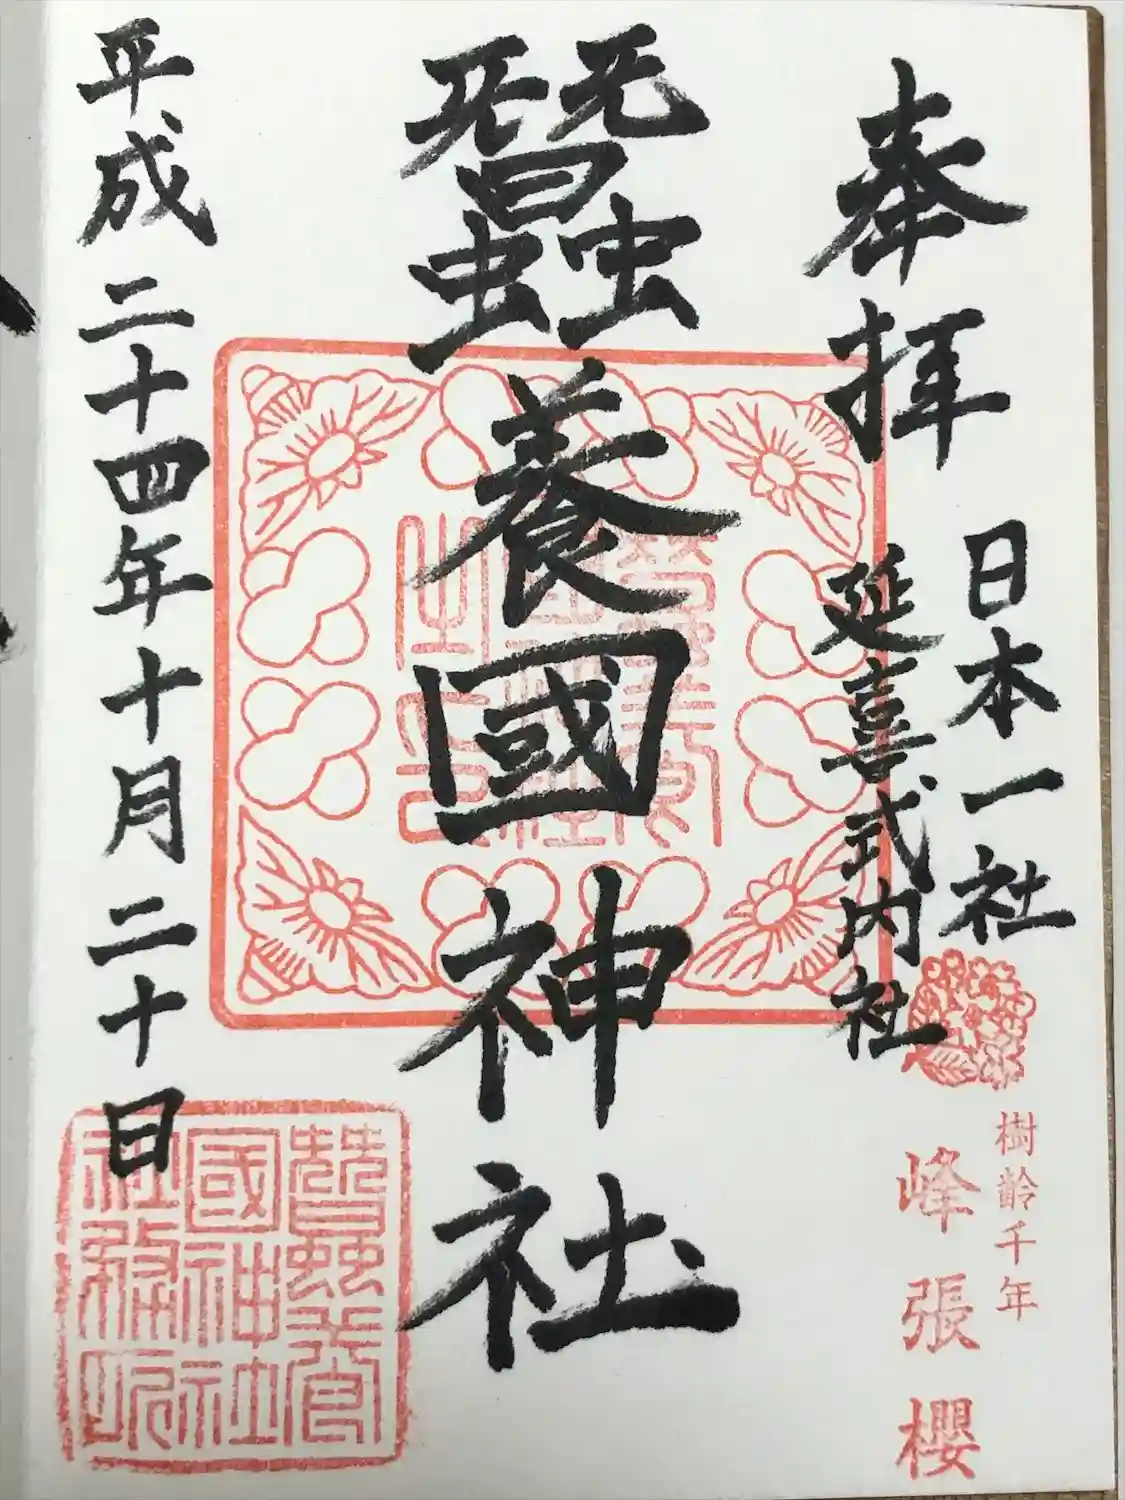 奉拝
日本一社
延喜式内社
樹齢千年
峰張櫻
蠶養國神社
平成二十四年十月二十日
蠶養
國神社
社務所